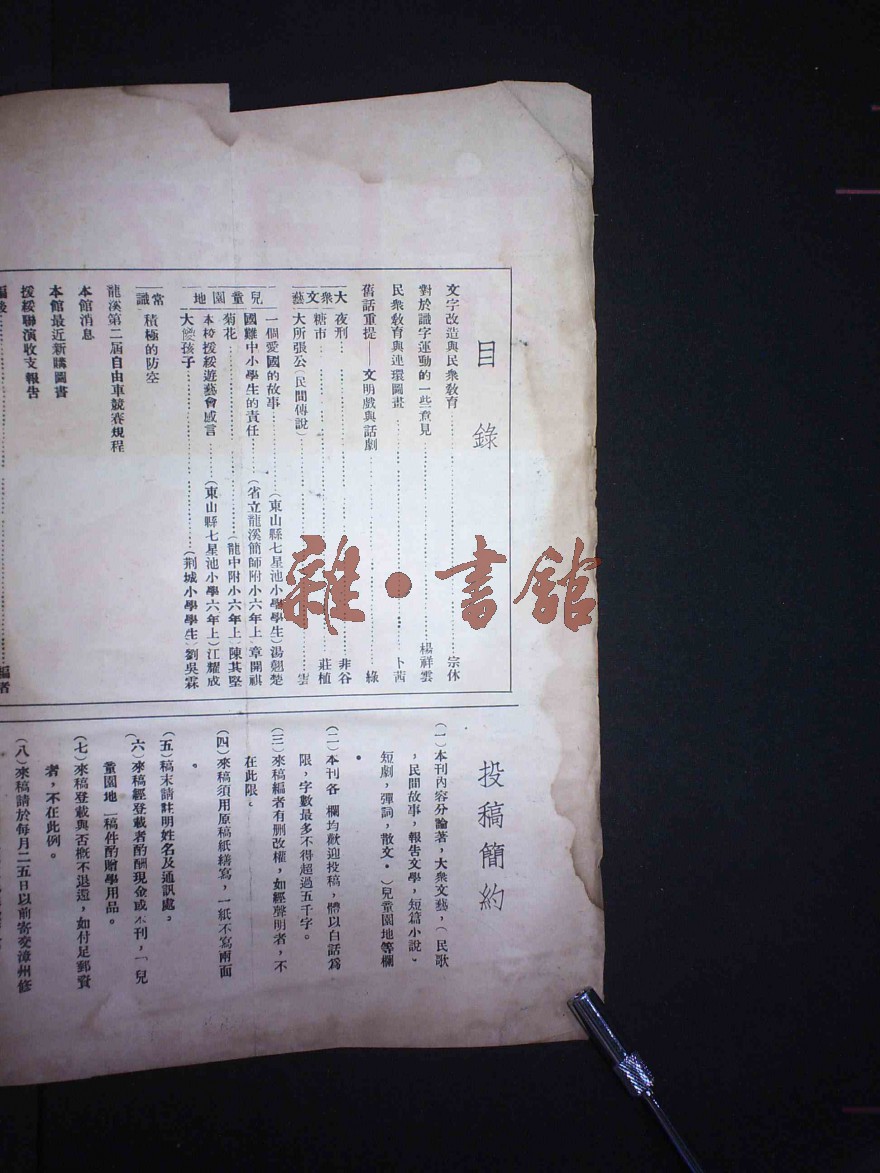 目 錄
文字改造與民衆敎育……宗休
對於識字運動的一些意見……楊祥雲
民衆敎育與連環圖畫……卜茜
舊話重提——文明戲與話劇……綠
大衆文藝
夜刑……非谷
糖市……莊植
大所張公（民間傳說）……雲
兒童園地
一個愛國的故事……（東山縣七星池小學學生）湯翹楚
國難中小學生的責任……（省立龍溪簡師附小六年上）章開祺
菊花……（龍中附小六年上）陳其堅
本校援綏遊藝會感言……（東山縣七星池小學六年上）江耀成
大膽孩子……（荆城小學學生）劉吳霖
常識
積極的防空
龍溪第二屆自由車競賽規程
本館消息
本館最近新購圖書
援綏聯演收支報告
編後……編者
投稿簡約
（一）本刊內容分論著，大衆文藝，（民歌
，民間故事，報告文學，短篇小說、
短劇，彈詞，散文・）兒童園地等欄
・
（二）本刊各 欄均歡迎投稿，體以白話爲
限，字數最多不得超過五千字。
（三）來稿編者有刪改權，如經聲明者，不
在此限。
（四）來稿須用原稿紙繕寫，一紙不寫兩面
。
（五）稿末請註明姓名及通訊處。
（六）來稿經登載者酌酬現金或本刊，「兒
童園地」稿件酌贈學用品。
（七）來稿登載與否槪不退還，如付足郵資
者，不在此例。
（八）來稿請於每月二五日以前寄交漳州修
雜・書館